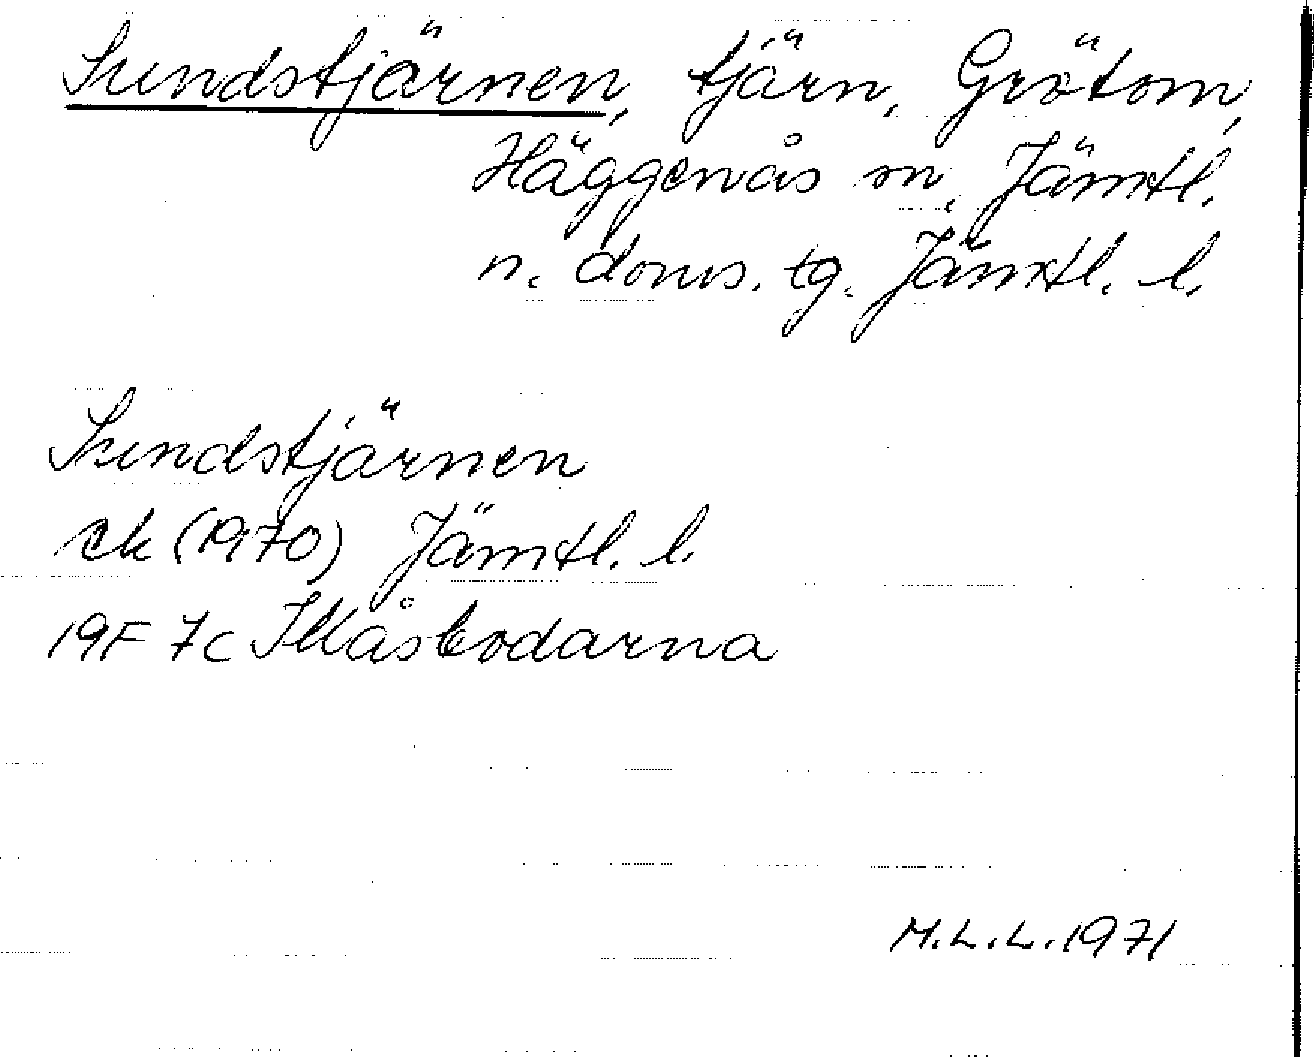 Sundstjärnen, tjärn, Grötom,
Häggenås sn, Jämtl.
n. doms. tg. Jämtl. l.
Sundstjärnen
ek (1970) Jämtl. l.
19F 7c Skåsbodarna
M.L.L. 1971